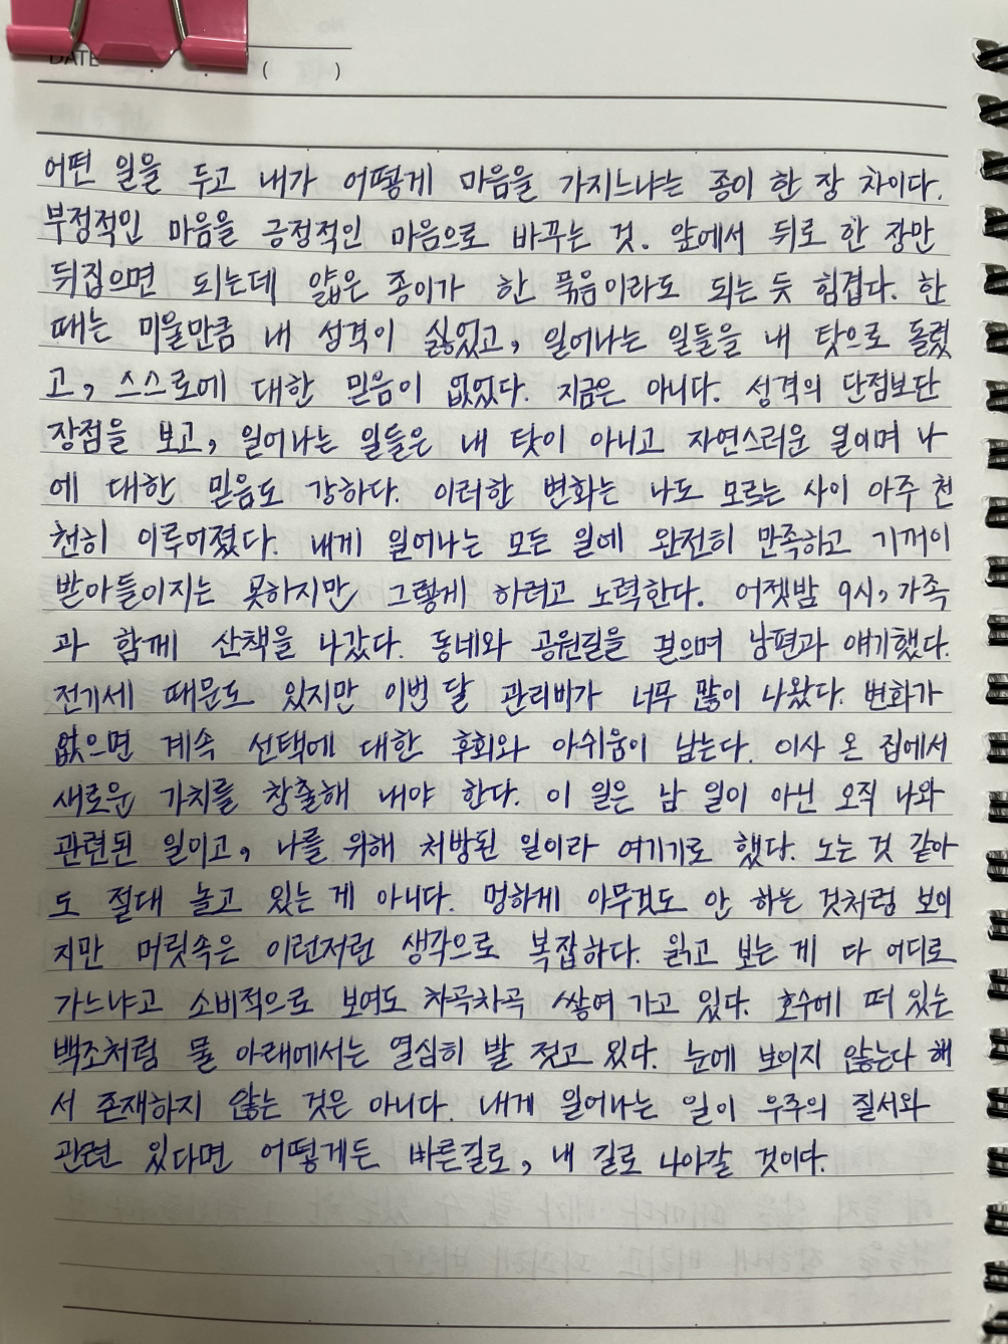 DATE . . ( )
어떤 일을 두고 내가 어떻게 마음을 가지느냐는 종이 한 장 차이다.
부정적인 마음을 긍정적인 마음으로 바꾸는 것. 앞에서 뒤로 한 장만
뒤집으면 되는데 얇은 종이가 한 묶음이라도 되는 듯 힘겹다. 한
때는 미울만큼 내 성격이 싫었고, 일어나는 일들을 내 탓으로 돌렸
고, 스스로에 대한 믿음이 없었다. 지금은 아니다. 성격의 단점보단
장점을 보고, 일어나는 일들은 내 탓이 아니고 자연스러운 일이며 나
에 대한 믿음도 강하다. 이러한 변화는 나도 모르는 사이 아주 천
천히 이루어졌다. 내게 일어나는 모든 일에 완전히 만족하고 기꺼이
받아들이지는 못하지만 그렇게 하려고 노력한다. 어젯밤 9시, 가족
과 함께 산책을 나갔다. 동네와 공원길을 걸으며 남편과 얘기했다.
전기세 때문도 있지만 이번 달 관리비가 너무 많이 나왔다. 변화가
없으면 계속 선택에 대한 후회와 아쉬움이 남는다. 이사 온 집에서
새로운 가치를 창출해 내야 한다. 이 일은 남 일이 아닌 오직 나와
관련된 일이고, 나를 위해 처방된 일이라 여기기로 했다. 노는 것 같아
도 절대 놀고 있는 게 아니다. 멍하게 아무것도 안 하는 것처럼 보이
지만 머릿속은 이런저런 생각으로 복잡하다. 읽고 보는 게 다 어디로
가느냐고 소비적으로 보여도 차곡차곡 쌓여 가고 있다. 호수에 떠 있는
백조처럼 물 아래에서는 열심히 발 젓고 있다. 눈에 보이지 않는다 해
서 존재하지 않는 것은 아니다. 내게 일어나는 일이 우주의 질서와
관련 있다면 어떻게든 바른길로, 내 길로 나아갈 것이다.